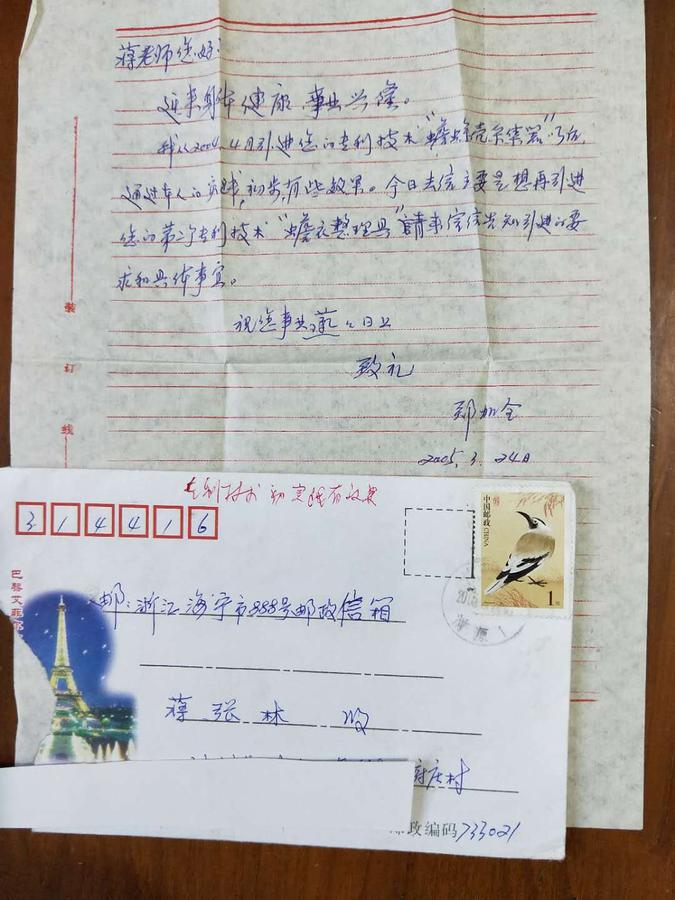 蒋老师您好:
近来身体健康 事业兴隆。
我从2004.4月引进您的专利技术“蟾蜍壳采集器”以后,
通过本人的实践,初步有些效果。今日去信主要是想再引进
您的第二个专利技术“蟾衣整理具”請来信告知引进的要
求和具体事宜。
祝您事业蒸々日上
致礼
郑加全
2005.3.24日
装
订
线
专利技术 初实践有效果
314416
中国邮政
CHINA
1元
巴黎艾菲尔
邮:浙江海宁市888号邮政信箱
蒋张林 收
村
邮政编码733021